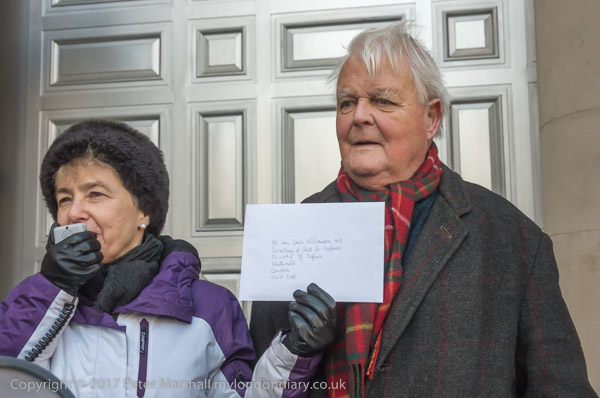 Rt Hon Gavin Williamson MP
Secretary of State for Defence
Ministry of Defence
Whitehall
London
SW1A
Copyright © 2017 Peter Marshall mylondondiary.co.uk